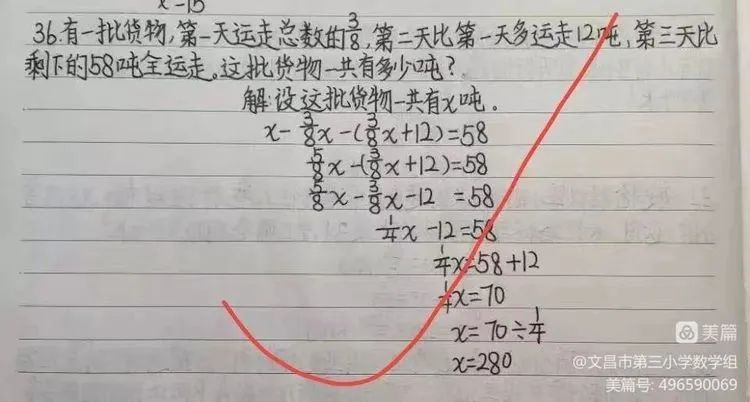 x-15
36.有一批货物,第一天运走总数的3/8,第二天比第一天多运走12吨,第三天比
剩下的58吨全运走。这批货物一共有多少吨?
解:设这批货物一共有x吨。
x-3/8x-(3/8x+12)=58
5/8x-(3/8x+12)=58
5/8x-3/8x-12=58
1/4x-12=58
1/4x=58+12
1/4x=70
x=70÷1/4
x=280
美篇
@文昌市第三小学数学组
美篇号: 496590069